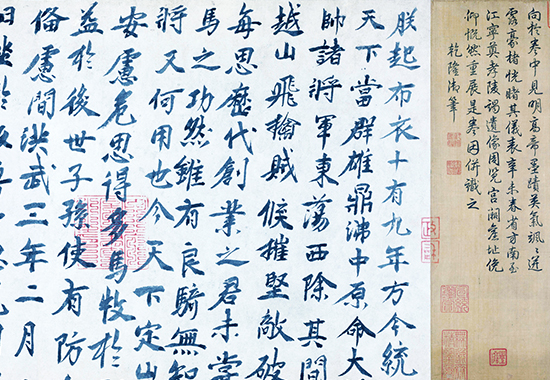 向於卷中見明高帝墨蹟英氣颯〻迸
露豪楮恍睹其儀表辛未春省方南至
江寧奠孝陵謁遺像周覽宫闕舊址俛
仰慨然重展是卷因併識之
乾隆御筆
朕起布衣十有九年方今統
天下當群雄鼎沸中原命大
帥諸將軍東蕩西除其間
越山飛擒賊候摧堅敵破
每思歷代創業之君未嘗
馬之功然雖有良騎無知
將又何用也今天下定山
安慮危思得多馬牧於
益於後世子孫使有防
備慮間洪武三年二月